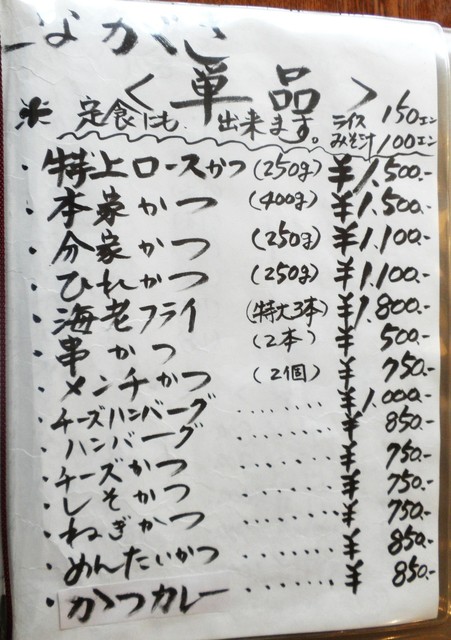 しながき
<単品>
＊定食にも出来ます。
ライス 150エン
みそ汁 100エン
・特上ロースかつ (250g) ¥1,500.-
・本家かつ (400g) ¥1,500.-
・分家かつ (250g) ¥1,100.-
・ひれかつ (250g) ¥1,100.-
・海老フライ (特大3本) ¥1,800.-
・串かつ (2本) ¥500.-
・メンチかつ (2個) ¥750.-
・チーズハンバーグ ........ ¥1,000.-
・ハンバーグ ........ ¥850.-
・チーズかつ ........ ¥750.-
・しそかつ ........ ¥750.-
・ねぎかつ ........ ¥750.-
・めんたいかつ ........ ¥850.-
・かつカレー ........ ¥850.-